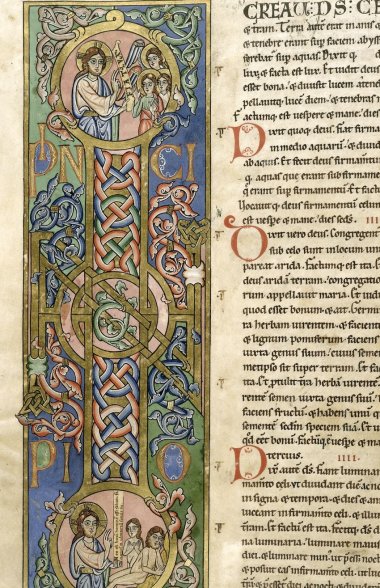 IN
CI
PI
O
CREAV. DS. CE
& tram. Terra aute erat inanis &
& tenebre erant sup faciem abyss
ferebat sup aquas. Dixit q
lux. & facta est lux. Et uidit deus
esset bona. & diuisit lucem a tene
pellauitq; luce diem. & tenebras n
factumq; est uespere & mane. dies
Dixit quoq; deus. fiat firma
in medio aquaru. & diuidat
ab aquis. Et fecit deus firmamentu
q; aquas que erant sub firmame
q erant sup firmamentu. & fact
Uocauit q; deus firmamentu celum
est uespe & mane. dies scds. III
Dixit uero deus. Congregent
sub celo sunt in locum unu
pareat arida. factumq; est ita.
deus arida terram. congregatio
rum appellauit maria. Et uidit
quod esset bonum. & ait. Germi
ra herbam uirentem. & faciente
& lignum pomiferum faciens
iuxta genus suum. cuius semen
metipso sit super terram. Et fac
ita. Et ptulit tra herba uirente
rente semen iuxta genus suu.
faciens fructu. & habens unu q
semente scdm speciem sua. Et
qd eet bonu. factuq; e uespe & ma
tercius. IIII
Dix aute ds. fiant luminar
mamto celi. ut diuidant die ac no
in signa & tempora. & dies & an
luceant in firmamto celi. & illu
tram. Et factu est ita. fecitq; ds d
na luminaria. luminare maiu
diei. & luminare min ut pess noct
& posuit eas in firmamto celi. ut